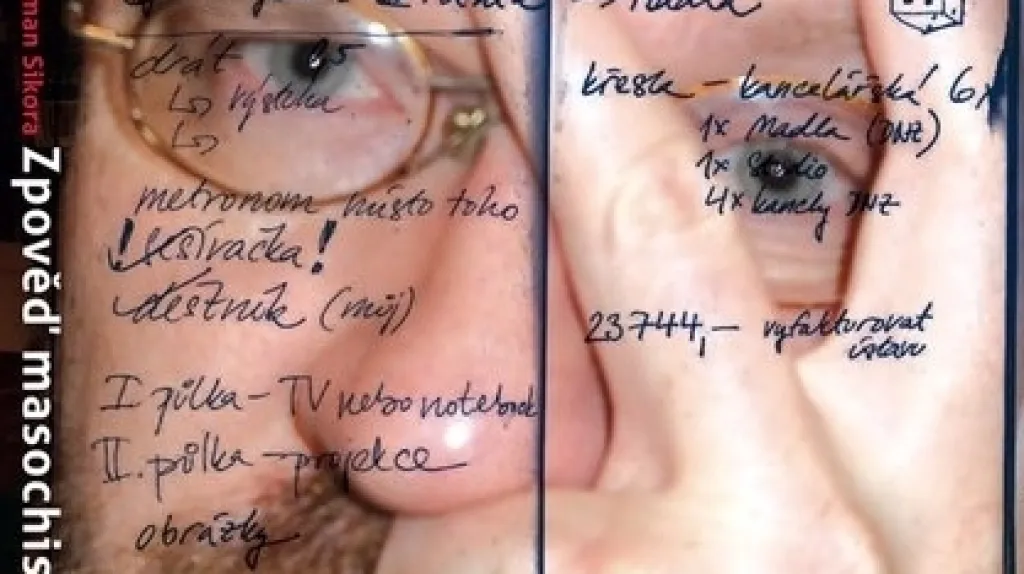 man Sikora
Zpověď masochis
drát
↳ výstelka
↳
metronom místo toho
! Usívačka !
deštník (můj)
I půlka - TV nebo notebook
II. půlka - projekce
obrázky
křesla - kancelářská 6x
1x Madla (DNZ)
1x Studio
4x kancly DNZ
23744,- vyfakturovat
ústavu